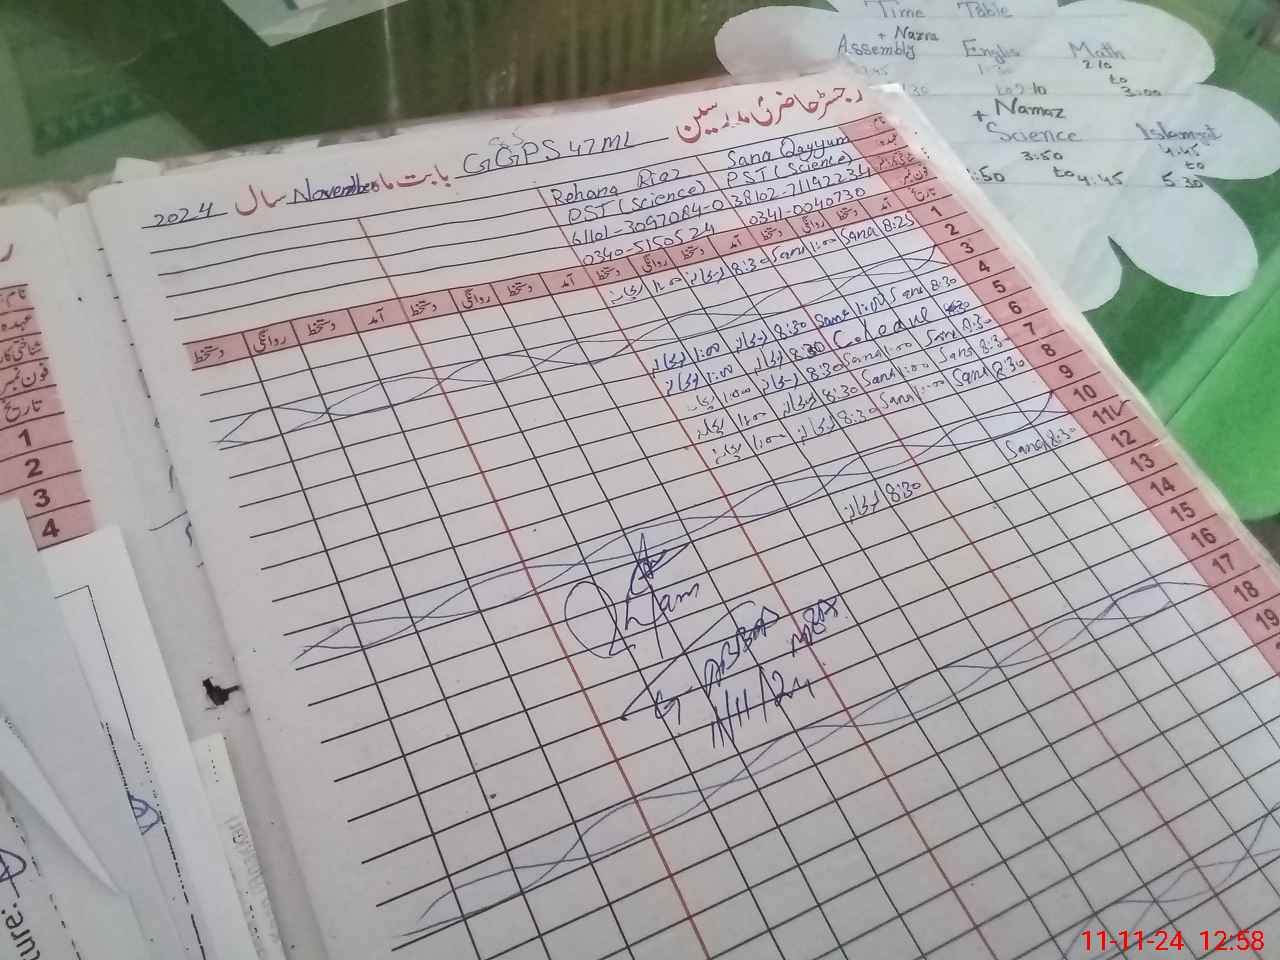 Time Table
+ Nazra
Assembly Englis Math
1:30 2:10
to 2:10 to
3:00
+ Namaz
Science Islamyat
3:50 4:45
to 4:45 to
5:30
رجسٹر حاضری مدرسین
GGPS 47 ML
بابت ماہ November سال 2024
Sana Qayyum
Rehana Riaz
PST (Science)
PST (Science)
38102-7119223-4
61101-3097084-0
0341-0040730
0340-5150524
تاریخ
آمد دستخط روانگی دستخط آمد دستخط روانگی دستخط آمد دستخط روانگی دستخط
1 8:25 Sana 1:00 Sana 8:30 ریحانہ 1:00 ریحانہ
2
3
4 8:30 Sana 1:00 Sana 8:30 ریحانہ 1:00 ریحانہ
5 8:30 ریحانہ 1:00 ریحانہ
6 8:30 Sana 1:00 Sana 8:30 ریحانہ 1:00 ریحانہ
7 8:30 Sana 1:00 Sana 8:30 ریحانہ 1:00 ریحانہ
8 8:30 Sana 1:00 Sana 8:30 ریحانہ 1:00 ریحانہ
9
10
11 8:30 Sana 8:30 ریحانہ
12
13
14
15
16
17
18
19
11/11/24
نام
عہدہ
فون نمبر
تاریخ
1
2
3
4
ture:
11-11-24 12:58